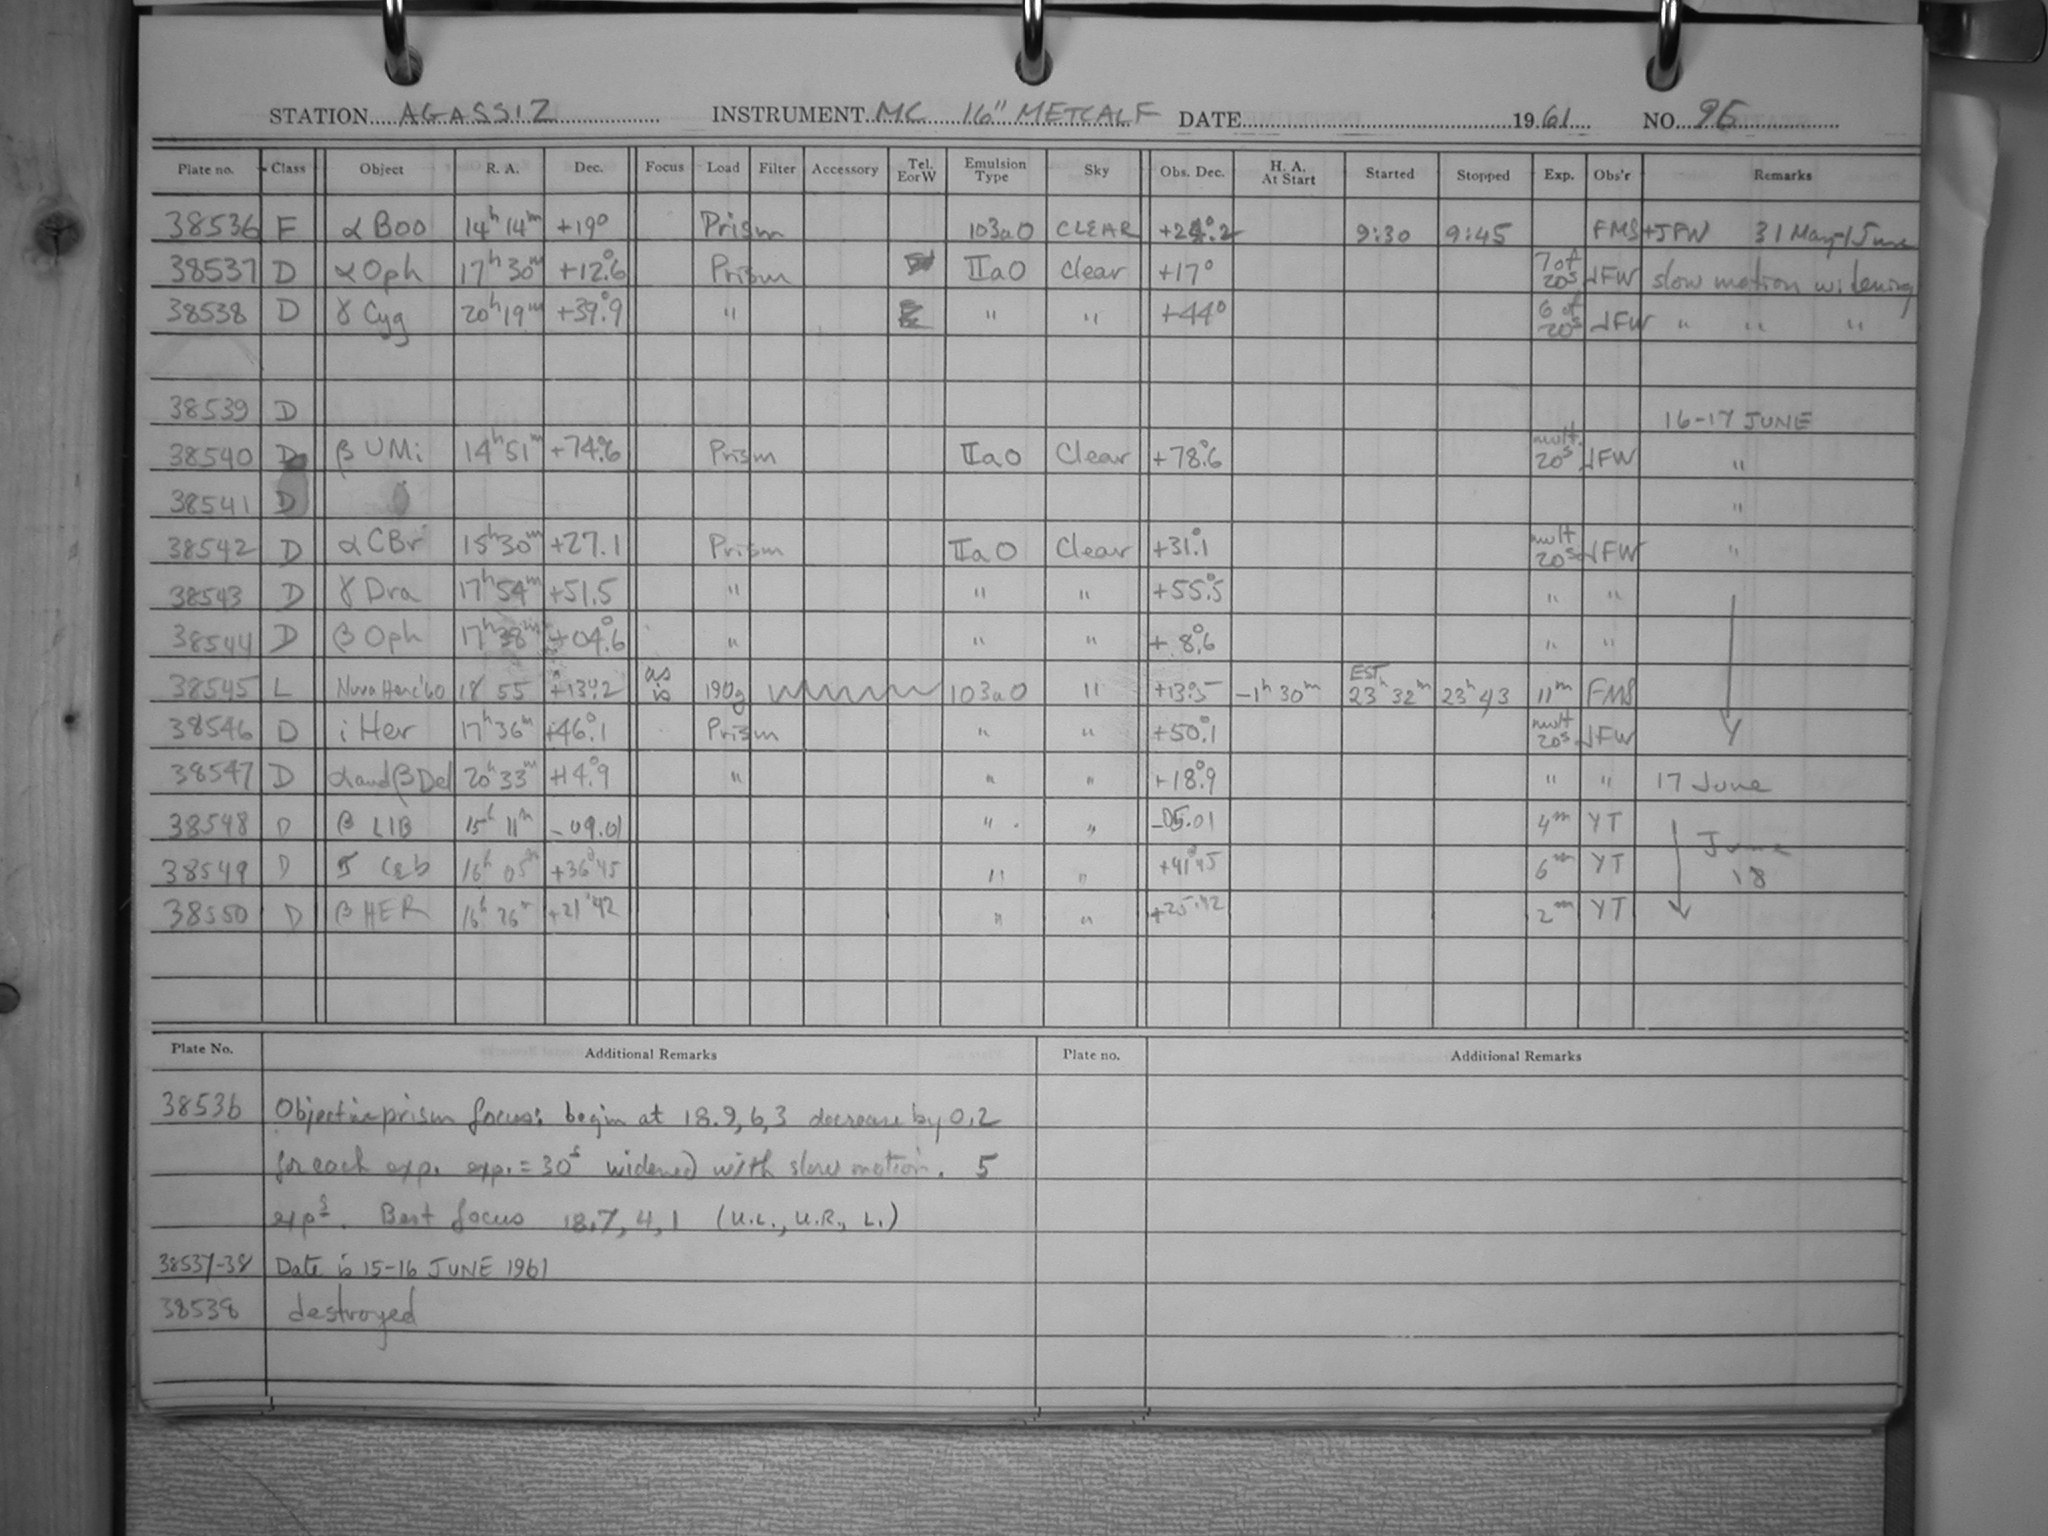 STATION AGASSIZ INSTRUMENT MC 16" METCALF DATE 1961 NO. 95
Plate no. Class Object R. A. Dec. Focus Load Filter Accessory Tel. E or W Emulsion Type Sky Obs. Dec. H. A. At Start Started Stopped Exp. Obs'r Remarks
38536 F α Boo 14h 14m +19° Prism 103aO CLEAR 9:30 9:45 FMS+JFW 31 May-1 June
38537 D α Oph 17h 30m +12°.6 Prism IIaO Clear +17° 7 of 20s JFW slow motion widening
38538 D γ Cyg 20h 19m +39°.9 " " " +44° 6 of 20s JFW " " "
38539 D 16-17 JUNE
38540 D β UMi 14h 51m +74°.6 Prism IIaO Clear +78°.6 mult. 20s JFW "
38541 D "
38542 D α CBr 15h 30m +27.1 Prism IIaO Clear +31°.1 mult 20s JFW "
38543 D γ Dra 17h 54m +51.5 " " " +55°.5 " "
38544 D β Oph 17h 38m +04°.6 " " " + 8°.6 " "
38545 L Nova Herc '60 18 55 +13°.2 as is 190g 103aO " +13°.5 -1h 30m EST 23h 32m 23h 43 11m FMS
38546 D i Her 17h 36m +46°.1 Prism " " +50°.1 mult 20s JFW
38547 D α and β Del 20h 33m +14°.9 " " " +18°.9 " " 17 June
38548 D β LIB 15h 11m -09.01 " " -05.01 4m YT June
38549 D 16h 05m +36°45 " " +41°45 6m YT 18
38550 D β HER 16h 26m +21°42 " " +25°42 2m YT
Plate No. Additional Remarks Plate no. Additional Remarks
38536 Objective prism focus: begin at 18.9, 6, 3 decrease by 0.2
for each exp. exp. = 30s widened with slow motion. 5
exps. Best focus 18.7, 4, 1 (U.L., U.R., L.)
38537-38 Date is 15-16 JUNE 1961
38538 destroyed